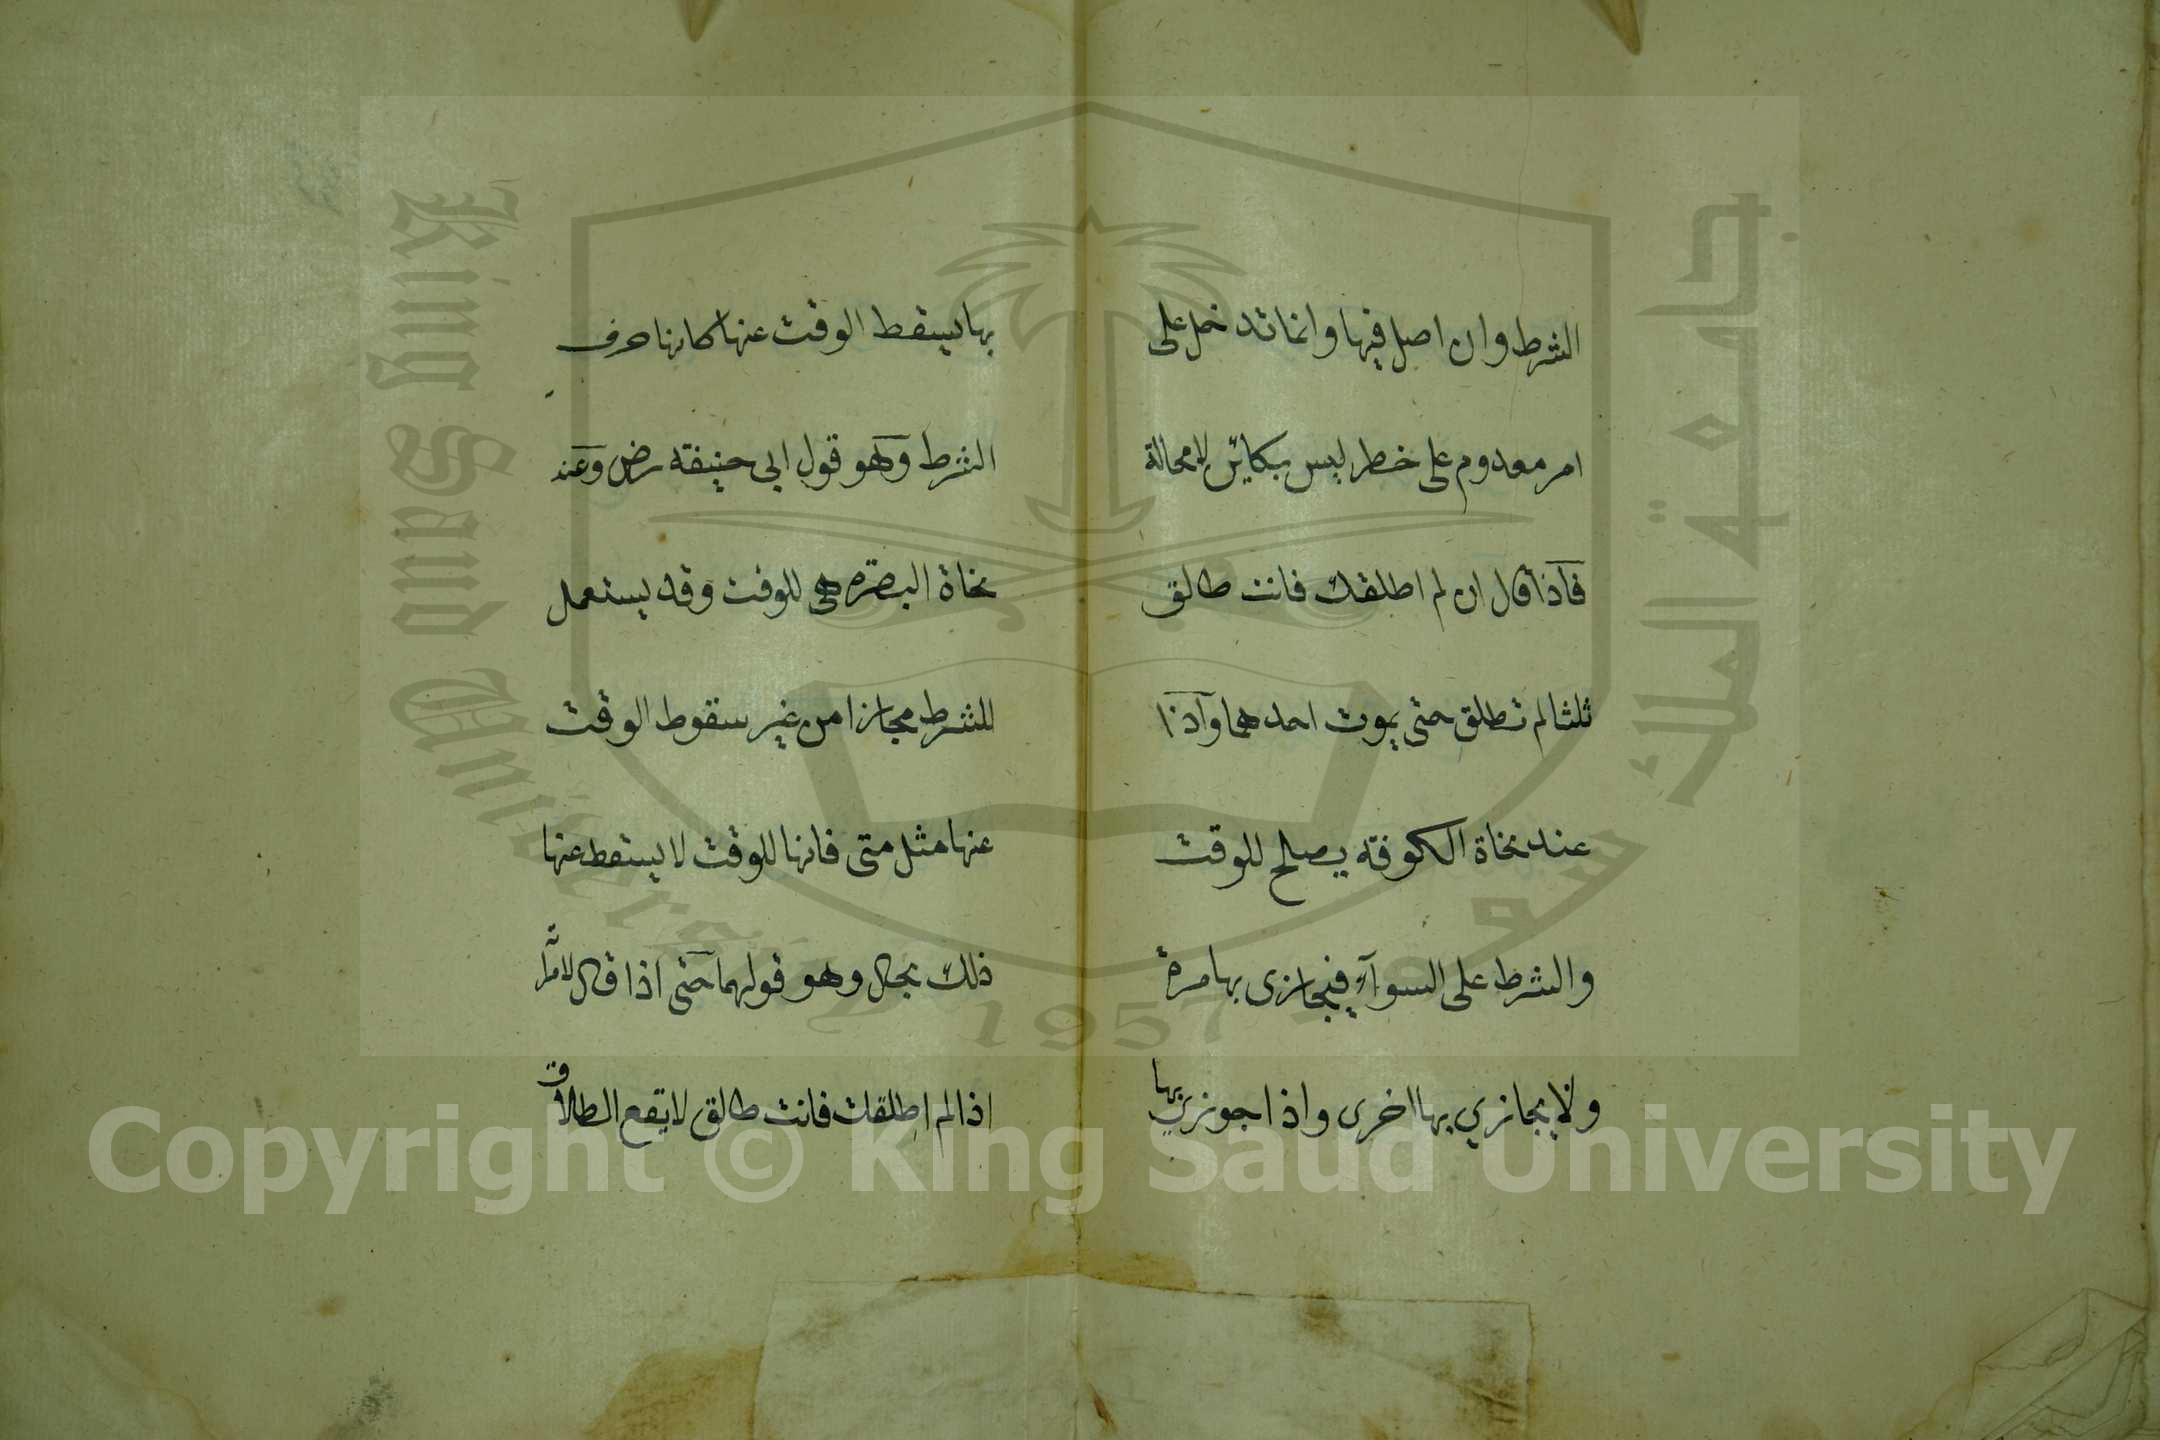 الشرط وان اصل فيها وانما تدخل على
امر معدوم على خطر ليس بكاين لا محالة
فاذا قال ان لم اطلقك فانت طالق
ثلثا لم تطلق حتى يموت احدهما واذا
عند نحاة الكوفة يصلح للوقت
والشرط على السوآء فيجازى بها مرة
ولا يجازي بها اخرى واذا جوزي بها
بها يسقط الوقت عنها كانها حرف
الشرط وهو قول ابي حنيفة رض وعند
نحاة البصرة هي للوقت وقد يستعمل
للشرط مجازا من غير سقوط الوقت
عنها مثل متى فانها للوقت لا يسقط عنها
ذلك بحال وهو قولهما حتى اذا قال لامرأته
اذا لم اطلقك فانت طالق لا يقع الطلاق
King Saud University
جامعة الملك سعود
1957
Copyright © King Saud University